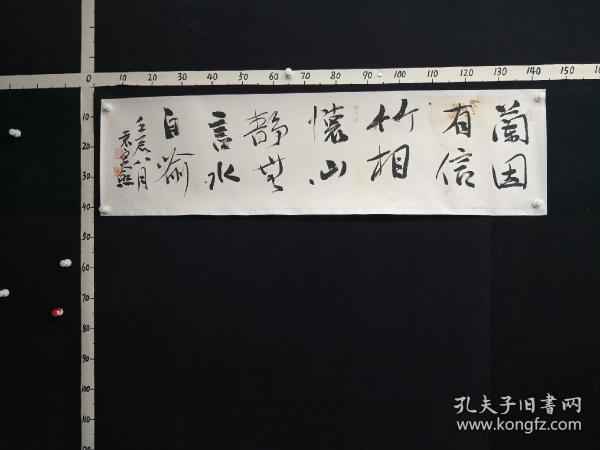 蘭因
有信
竹相
懷山
靜無
言水
自喻
八月
0 10 20 30 40 50 60 70 80 90 100 110 120 130 140 150 160
10
20
30
40
50
60
70
80
90
100
110
120
孔夫子旧書网
www.kongfz.com